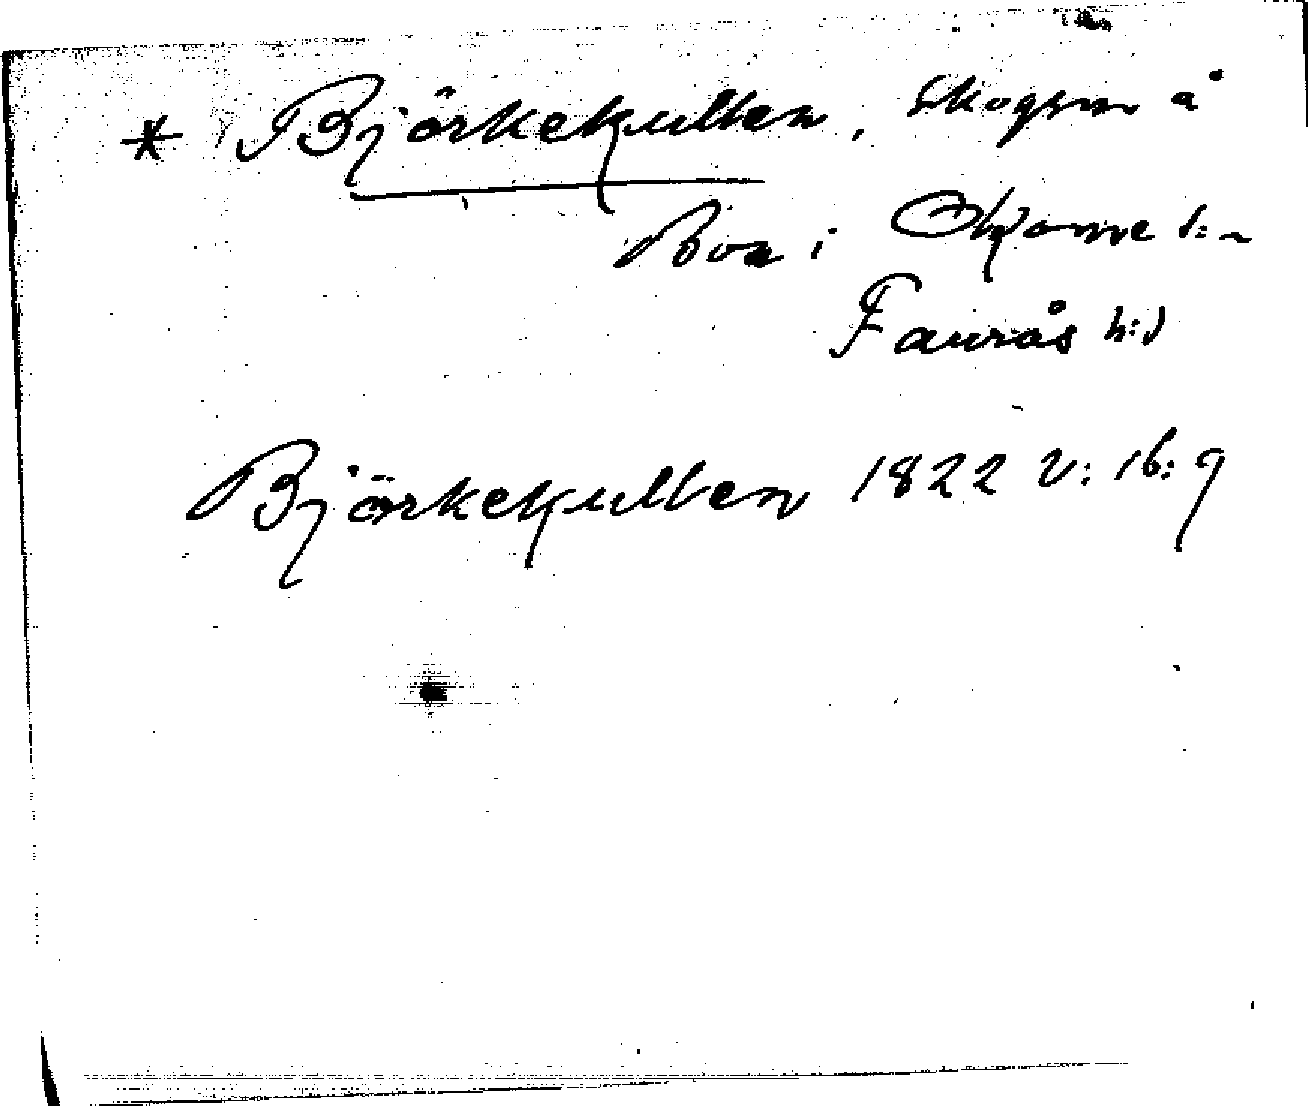 * Björkekullen, skogsm å
Boa i Okome s:n
Faurås h:d
Björkekullen 1822 v: 16: 9